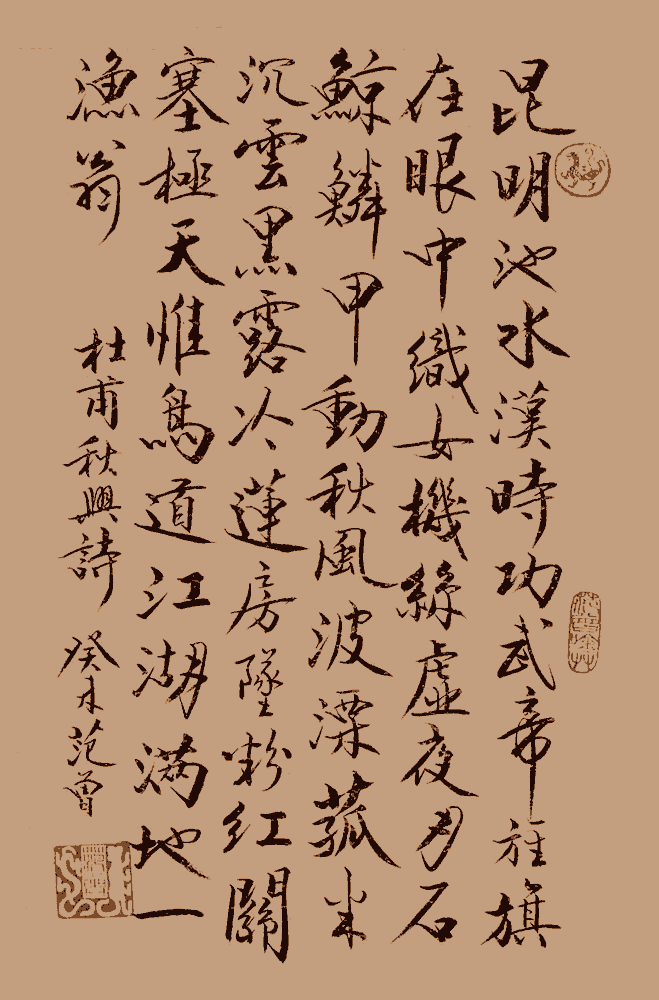 昆明池水漢時功武帝旌旗
在眼中織女機絲虛夜月石
鯨鱗甲動秋風波漂菰米
沉雲黑露冷蓮房墜粉紅關
塞極天惟鳥道江湖滿地一
漁翁
杜甫秋興詩 癸未范曾